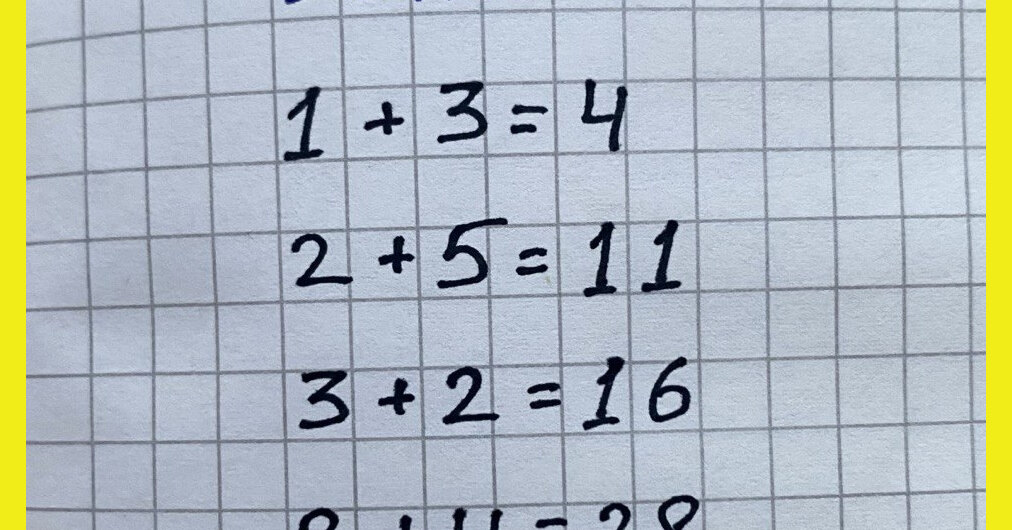 1 + 3 = 4
2 + 5 = 11
3 + 2 = 16